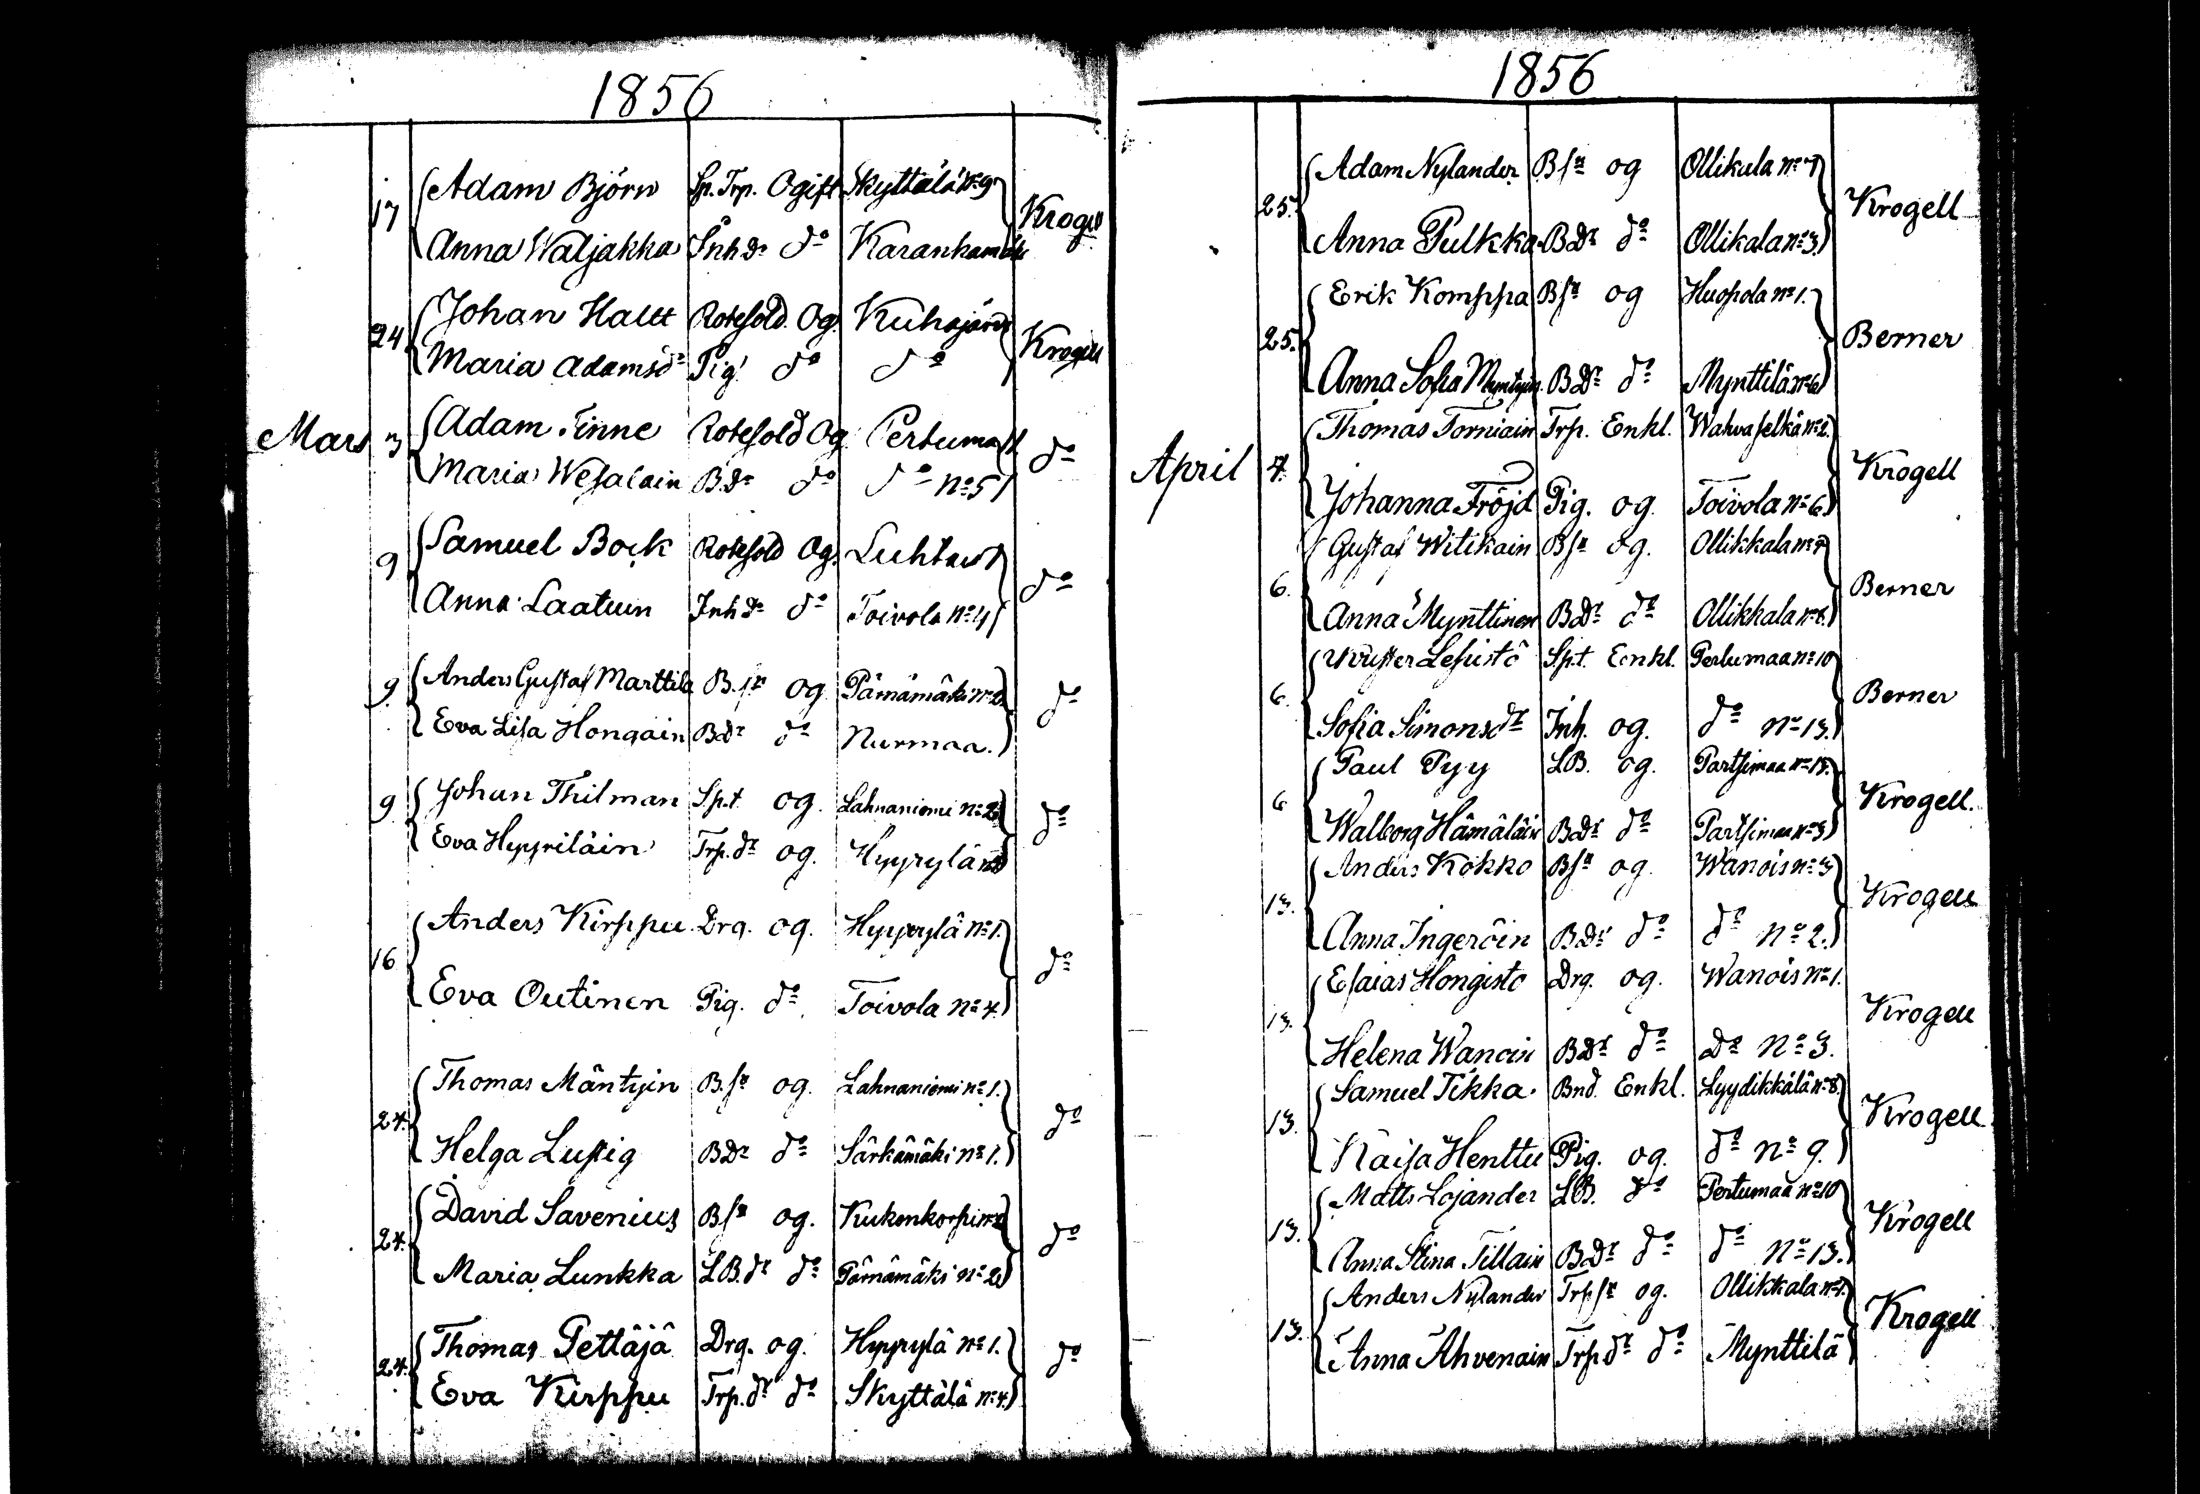 1856
17 Adam Björn Sp. Trp. Ogift Skyttälä No 9
Anna Waljakka Inh. dr do
Krogell
24 Johan Haltt Rotesold. Og.
Maria Adamsdr Pig. do do
Krogell
Mars 3 Adam Finne Rotesold Og Pertumaa
Maria Wesalain B.dr do do No 5
do
9 Samuel Bock Rotesold Og.
Anna Laatuin Inh dr do Toivola No 4
do
9. Anders Gustaf Marttila B.sn og Pärnämäki No 2
Eva Lisa Hongain B.dr do Nurmaa.
do
9. Johan Thilman Sp.t og. Lahnaniemi No 2
Eva Hyyriläin Trp. dr og. Hyyrylä
do
16 Anders Kirppu Drg. og. Hyyrylä No 1.
Eva Outinen Pig. do Toivola No 4.
do
24. Thomas Mäntyin B.sn og. Lahnaniemi No 1.
Helga Lustig B.dr do Särkämäki No 1.
do
24. David Savenius Bsn og. Kukonkorpi
Maria Lunkka L.B. dr do Pärnämäki No 2.
do
24. Thomas Pettäjä Drg. og. Hyyrylä No 1.
Eva Kirppu Trp. dr do Skyttälä No 4.
do
1856
25. Adam Nylander Bsn og Ollikala No 7
Anna Pulkka B.dr do Ollikala No 3.
Krogell
25. Erik Komppa Bsn og Huopola No 1.
Anna Sofia B.dr do Mynttilä No 6
Berner
April 4. Thomas Torniain Trp. Enkl. Wahvaselkä No 2.
Johanna Fröjd Pig. og. Toivola No 6.
Krogell
6. Gustaf Witikain Bsn og. Ollikkala No 7
Anna Mynttinen B.dr do Ollikkala No 8.
Berner
6. Lehistö Spt. Enkl. Pertumaa No 10
Sofia Simonsdr Inh. og. do No 13.
Berner
6 Paul Pyy LB. og. Partsimaa No 15.
Walborg Hämäläin B.dr do Partsimaa No 3
Krogell.
13. Anders Kokko Bsn og. Wanois No 3
Anna Ingeröin B.dr do do No 2.
Krogell
13. Esaias Hongisto Drg. og. Wanois No 1.
Helena Wanoin B.dr do Do No 3.
Krogell
13. Samuel Tikka. Bnd. Enkl. Lyydikkälä No 8.
Kaisa Henttu Pig. og. do No 9.
Krogell
13. Matts Lojander LB. do Pertumaa No 10
Anna Stina Tillain B.dr do do No 13.
Krogell
13. Anders Nylander Trp sn og. Ollikkala No 7.
Anna Ahvenain Trp dr do Mynttilä
Krogell